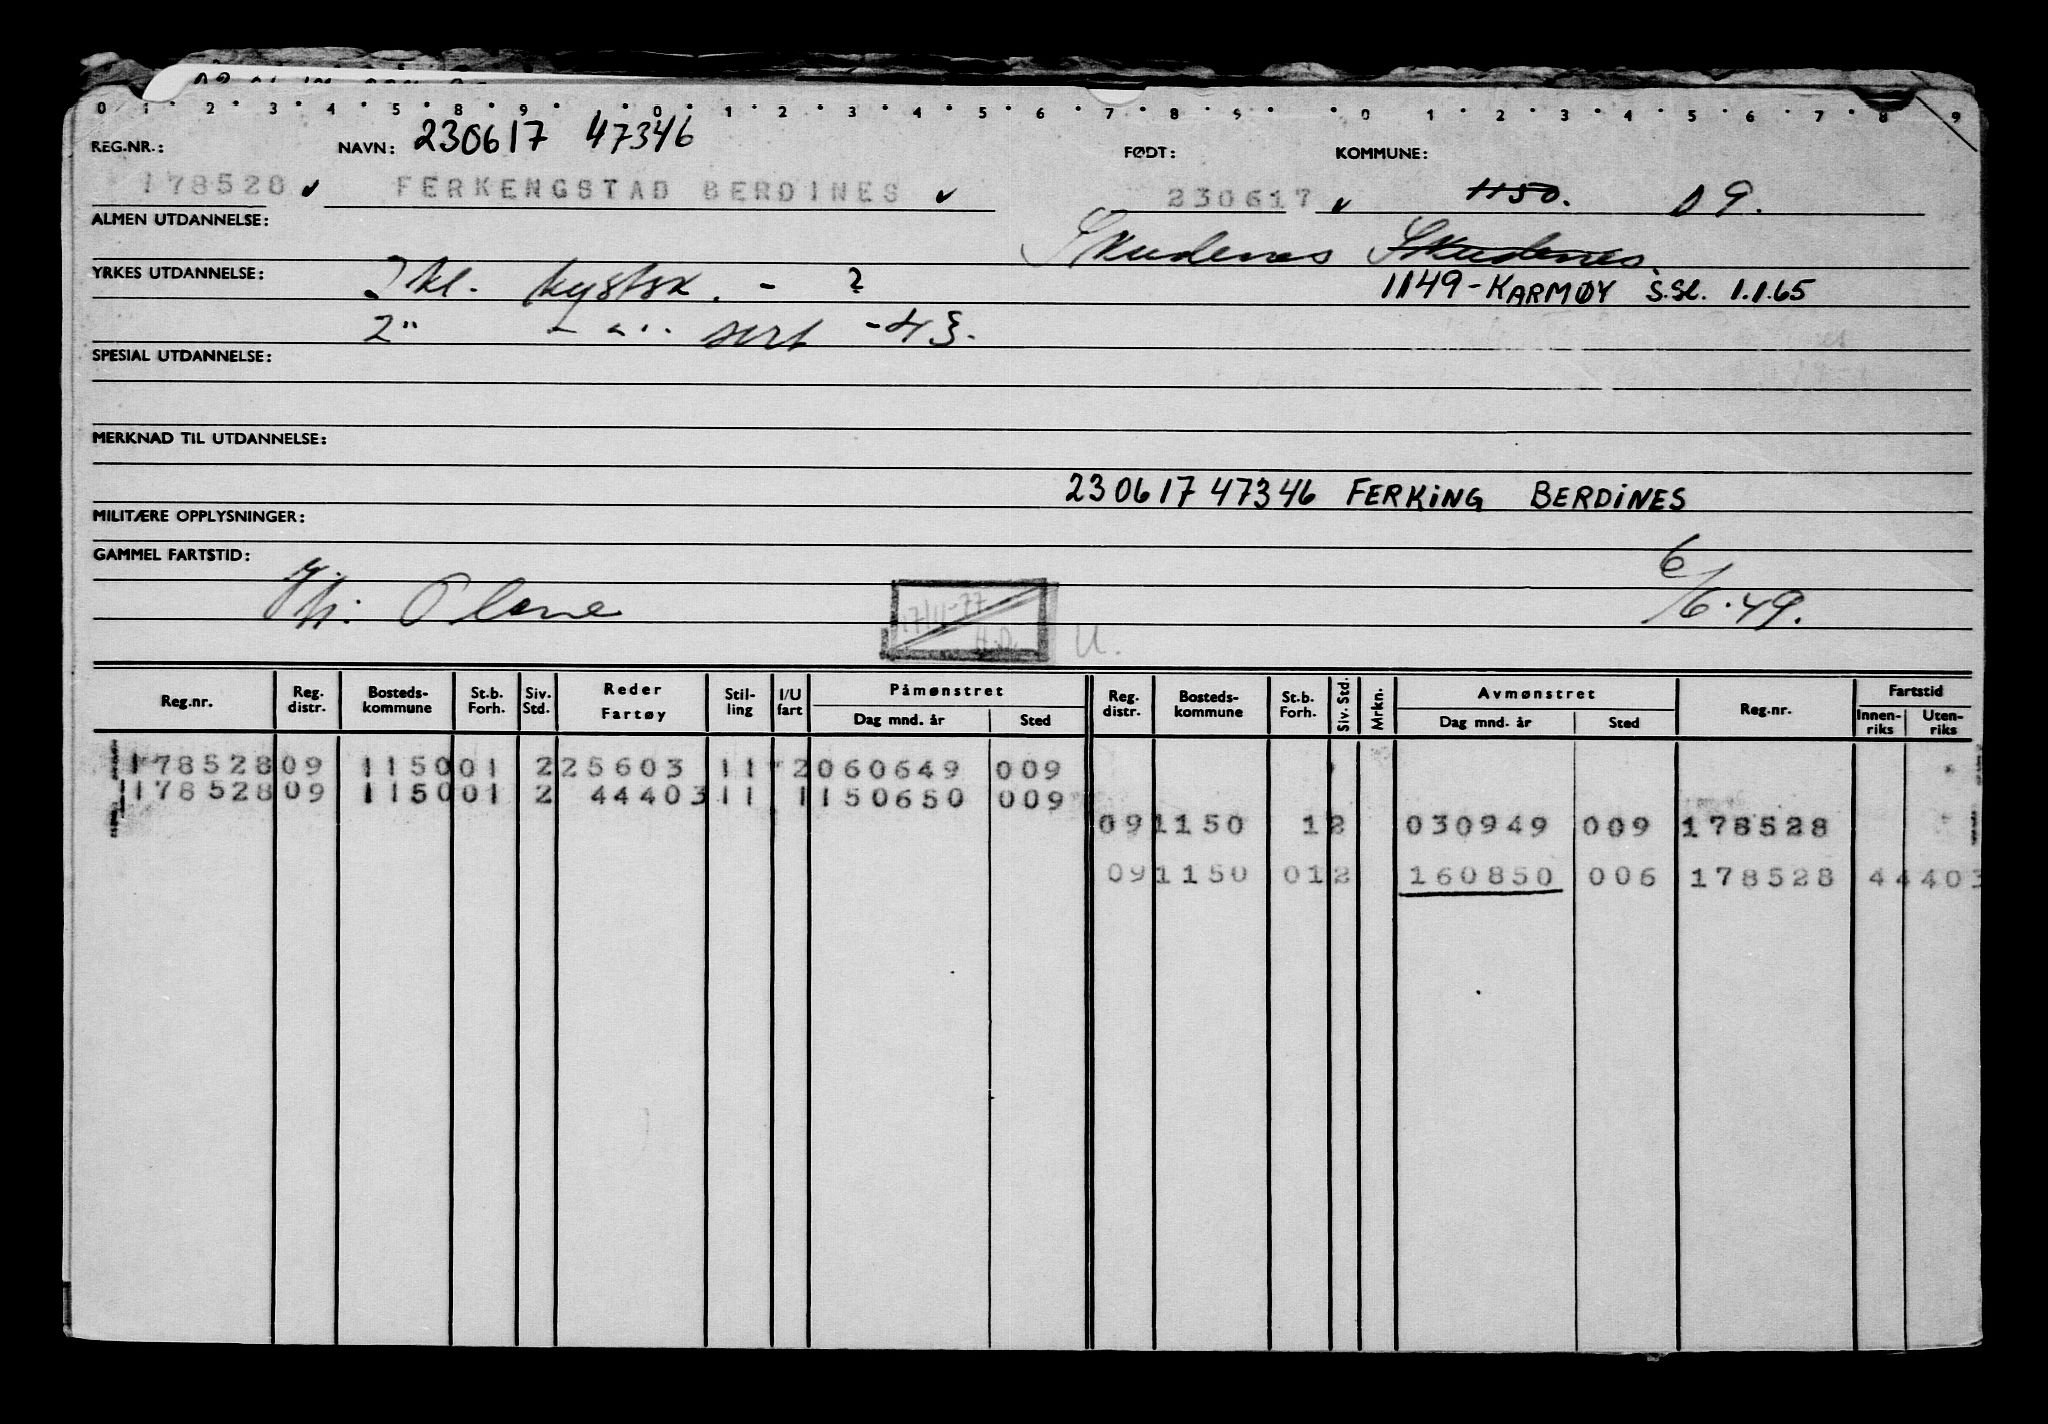 0 1 2 3 4 5 8 9 0 1 2 3 4 5 6 7 8 9 0 1 2 3 4 5 6 7 8 9
REG.NR.: NAVN: 230617 47346 FØDT: KOMMUNE:
178528 FERKENGSTAD BERDINES 230617 1150. 09.
ALMEN UTDANNELSE: Skudenes Skudenes
YRKES UTDANNELSE: kl. kystsk. - ? 1149-KARMØY S.Sl. 1.1.65
2 " - " - sert -43.
SPESIAL UTDANNELSE:
MERKNAD TIL UTDANNELSE:
230617 47346 FERKING BERDINES
MILITÆRE OPPLYSNINGER:
GAMMEL FARTSTID:
6/6.49.
17/11-77 U.
Reg.nr. Reg. distr. Bosteds-kommune St.b. Forh. Siv. Std. Reder Fartøy Stil-ling I/U fart Påmønstret Dag mnd. år Sted Reg. distr. Bosteds-kommune St.b. Forh. Siv. Std. Mrkn. Avmønstret Dag mnd. år Sted Reg.nr. Fartstid Innen-riks Uten-riks
178528 09 1150 01 2 25603 11 2 060649 009
178528 09 1150 01 2 44403 11 1 150650 009
09 1150 1 2 030949 009 178528
09 1150 01 2 160850 006 178528 44403